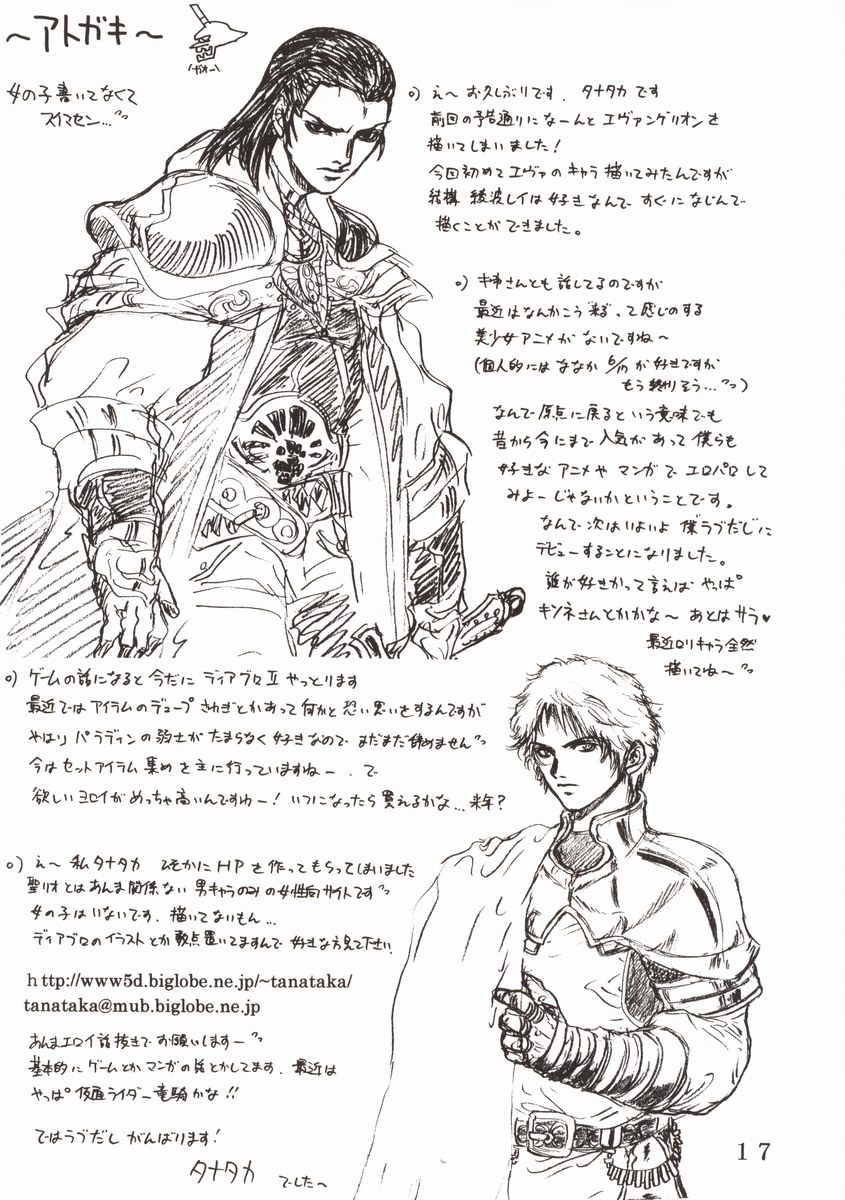 ～アトガキ～
（ガオー）
女の子書いてなくて
スイマセン…
o) え～ お久しぶりです. タナタカ です
前回の予告通りに なーんと エヴァンゲリオンを
描いてしまいました!
今回初めて エヴァの キャラ 描いてみたんですが
結構 綾波レイは 好きなんで すぐに なじんで
描くことが できました。
o) 姉さんとも 話してるのですが
最近はなんかこう "来る" って感じのする
美少女アニメが ないですね～
(個人的には ななか 6/17 が 好きですが
もう終りそう…)
なんで 原点に戻るという意味でも
昔から今にまで 人気が あって 僕らも
好きな アニメや マンガで エロパロ して
みよーじゃないか ということです。
なんで 次は いよいよ 僕"ラブだし"に
デビューすることに なりました。
誰が好きかって言えば やっぱ
キツネさんとかかな～ あとは サラ♥
最近ロリキャラ全然
描いてね～
o) ゲームの話になると 今だに ディアブロⅡ やっとります
最近では アイテムのデュープ さわぎとかあって 何かと 恐い思いを するんですが
やはり パラディンの 勇士が たまらなく 好きなので まだまだ 辞めません
今は セットアイテム 集め を主に 行っていますねー. で
欲しい ヨロイが めっちゃ 高いんですわー! いつになったら 買えるかな… 来年?
o) え～ 私 タナタカ ひそかに HP を 作って もらって しまいました
聖リオ とは あんま 関係 ない 男キャラのみ の 女性向サイトです
女の子は いないです. 描いてないもん…
ディアブロのイラストとか 数点 置いてますんで 好きな方見て下さい.
http://www5d.biglobe.ne.jp/~tanataka/
tanataka@mub.biglobe.ne.jp
あんまエロイ話 抜きで お願いしますー
基本的に ゲームとか マンガの 話とかしてます. 最近は
やっぱ 仮面ライダー 竜騎かな!!
では ラブだし がんばります!
タナタカ でした～
17